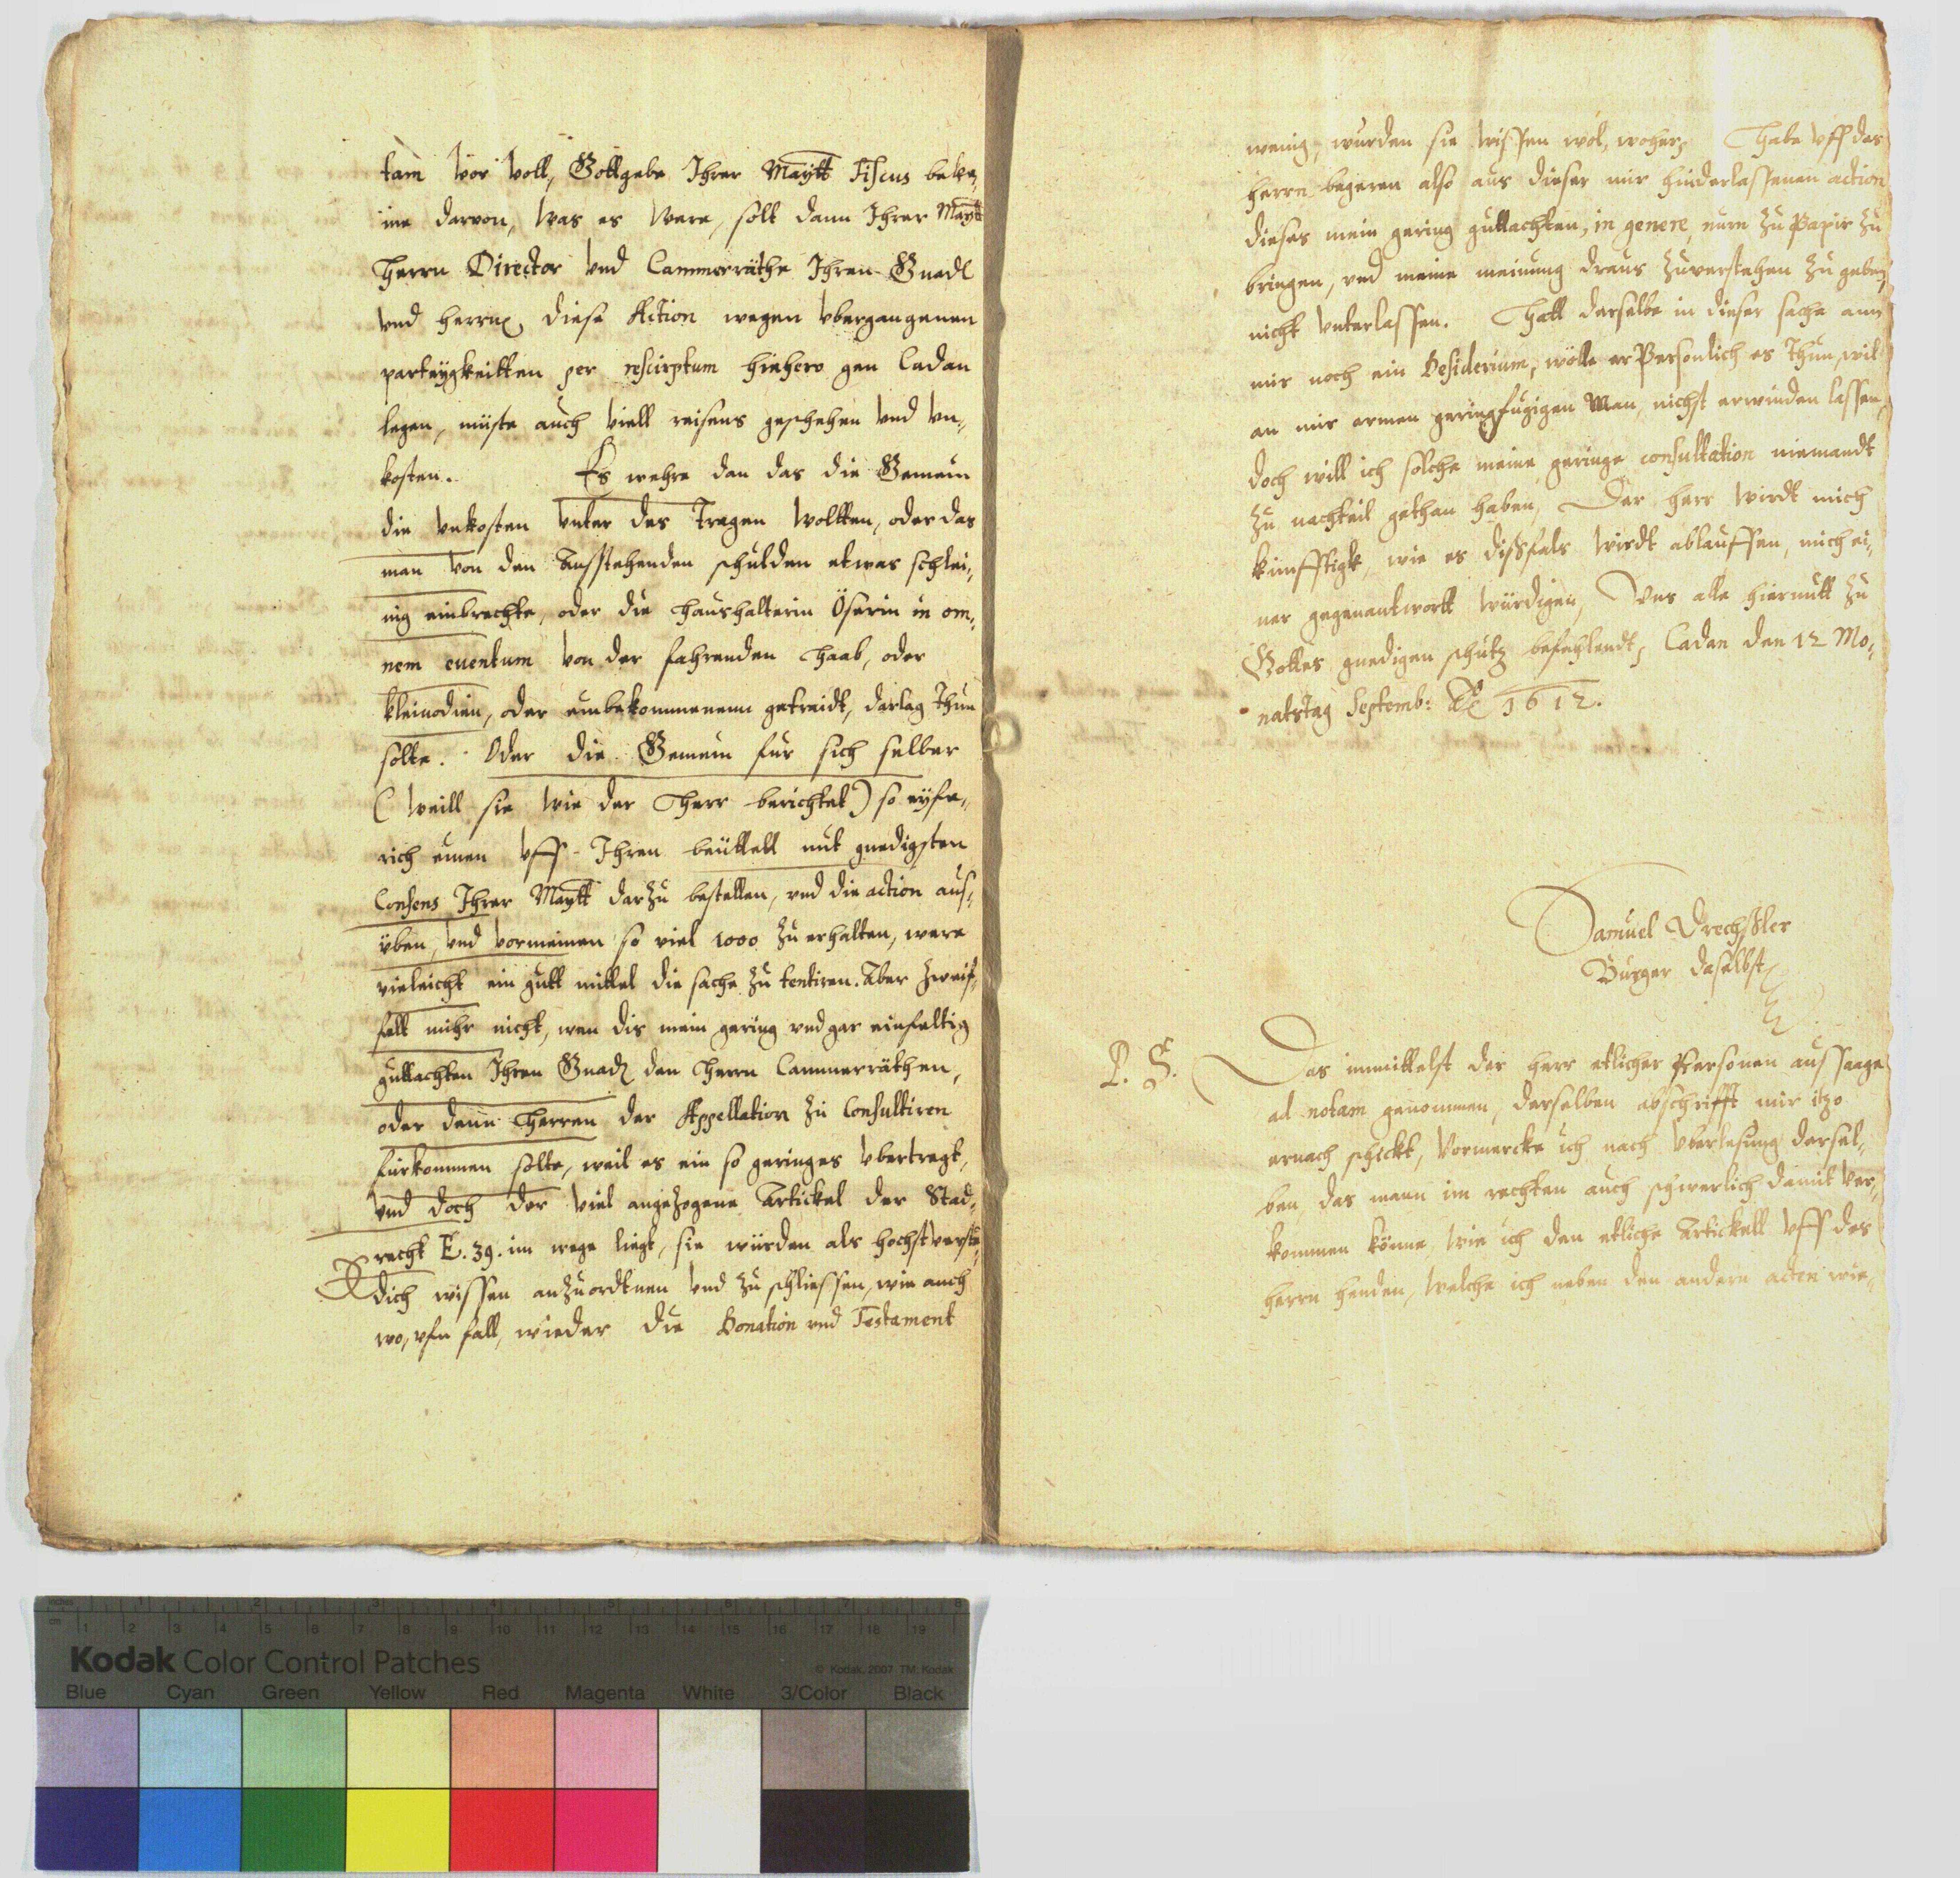 tam vor voll, Gottgebe Ihrer Maytt Fiscus beke,
me darvon, was es were, solt dann Ihrer Maytt
Herrn Director vnd Cammerräthe Ihren Gnad
vnd herrn, diese Action wegen vbergangenen
parteygkeitten per rescirptum hiehero gen Cadan
legen, müste auch viell reisens geschehen vnd vn,
kosten. Es wehre dan das die Gemein
die vnkosten vnter des Tragen woltten, oder das
man von den Ausstehenden schulden etwas schlei,
nig einbrechte, oder die Haushalterin Öserin in om,
nem euentum von der fahrenden Haab, oder
kleinodien, oder einbekommenem getreidt, darlag Thun
solte. Oder die Gemein fur sich selber
(weill sie wie der Herr berichtet) so eyfe,
rich einen vff Ihren beüttell mit gnedigsten
Consens Ihrer Maytt darzu bestellen, vnd die action aus,
üben, vnd vormeinen so viel 1000 zu erhalten, were
vieleicht ein gutt mittel die sache zu tentiren. Aber Zweif,
felt mihr nicht, wen dis mein gering vnd gar einfeltig
guttachten Ihren Gnad den Herrn Cammerräthen,
oder denn Herren der Appellation zu Consultiren
fürkommen solte, weil es ein so geringes vbertregt,
vnd doch der viel angezogene Artickel der Stad,
recht E. 39. im wege liegt, sie würden als hochstverste,
dich wissen anzuordtnen vnd zu schliessen, wie auch
wo, vfn fall, wieder die Donation vnd Testament
wenig, wurden sie wissen wol, woher. Habe vff des
herrn begeren also aus dieser mir hinderlassenen action
dieses mein gering guttachten, in genere, nurn zu Papir zu
bringen, vnd meine meinung draus zuverstehen zu geben,
nicht vnterlassen. Hatt derselbe in dieser sache ann
mir noch ein Desiderium, wölle er Personlich es Thun, wil
an mir armen geringfugigen Man, nichst erwinden lassen,
doch will ich solche meine geringe consultation niemandt
zu nachteil gethan haben, Der herr wirdt mich
kunfftigk, wie es dißfals wirdt ablauffen, mich ei,
ner gegenantwortt würdigen, Vns alle hiermitt zu
Gottes gnedigen schutz befehlendt, Cadan den 12 Mo,
natstag Septemb: Ao 1612.
Samuel Drechßler
Burger daselbst
P. S. Das inmittelst der herr etlicher Personen aussaage
ad notam genommen, derselben abschrifft mir itzo
ernach schickt, Vormercke ich nach vberlesung dersel,
ben, das mann im rechten auch schwerlich damit ver,
kommen könne, wie ich den etliche Artickell vff des
herrn henden, welche ich neben den andern acten wie,